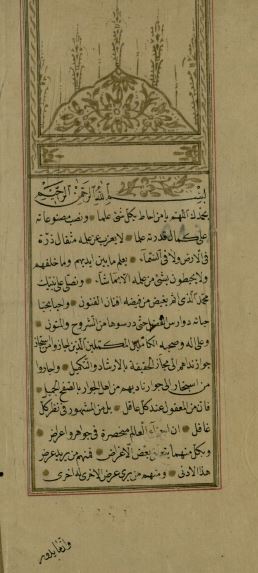 بسم الله الرحمن الرحيم
نحمدك اللهم يا من احاط بكل شئ علما ونصب مصنوعاته
على كمال قدرته علما لا يعزب عن علمه مثقال ذرة
في الارض ولا في السماء يعلم ما بين ايديهم وما خلفهم
ولا يحيطون بشئ من علمه الا بما شاء ونصلي على نبيك
محمد الذي بفيض من فيضه افنان الفنون
دوارس حتى درسوها من الشروح والمتون
وعلى اله وصحبه الكاملين المكملين الذين
الى مجاز الحقيقة بالارشاد والتكميل
من استجار من اهل الجوار
فان من المعقول عند كل عاقل بل من المشهور في نظر كل
غافل ان اجزاء العالم منحصرة في جواهر واعراض
وبكل منهما بعض الاغراض فمنهم من يريد عرض
هذا الادنى ومنهم من يرى عرض الاخرى له احرى